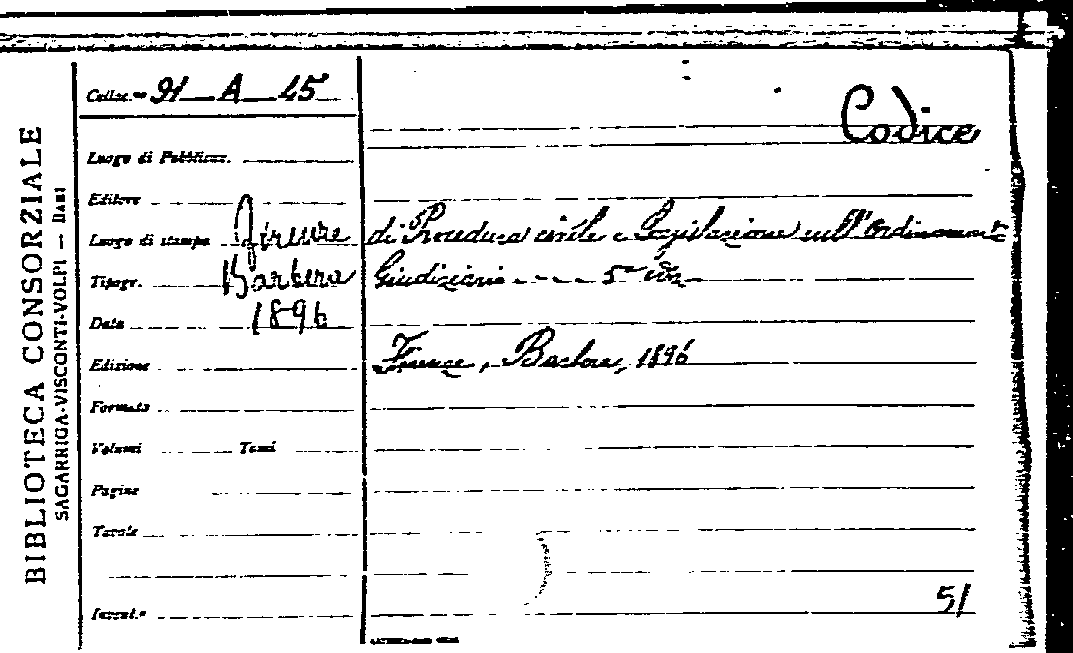 BIBLIOTECA CONSORZIALE
SAGARRIGA-VISCONTI-VOLPI — BARI
Colloc.= 91 A 45
Codice
Luogo di Pubblicaz.
Editore
Luogo di stampa Firenze
di Procedura civile e Legislazione sull'Ordinamento
Tipogr. Barbera
Giudiziario - - - 5ª
Data 1896
Edizione
Firenze, Barbera, 1896
Formato
Volumi Tomi
Pagine
Tavole
Invent.=
51